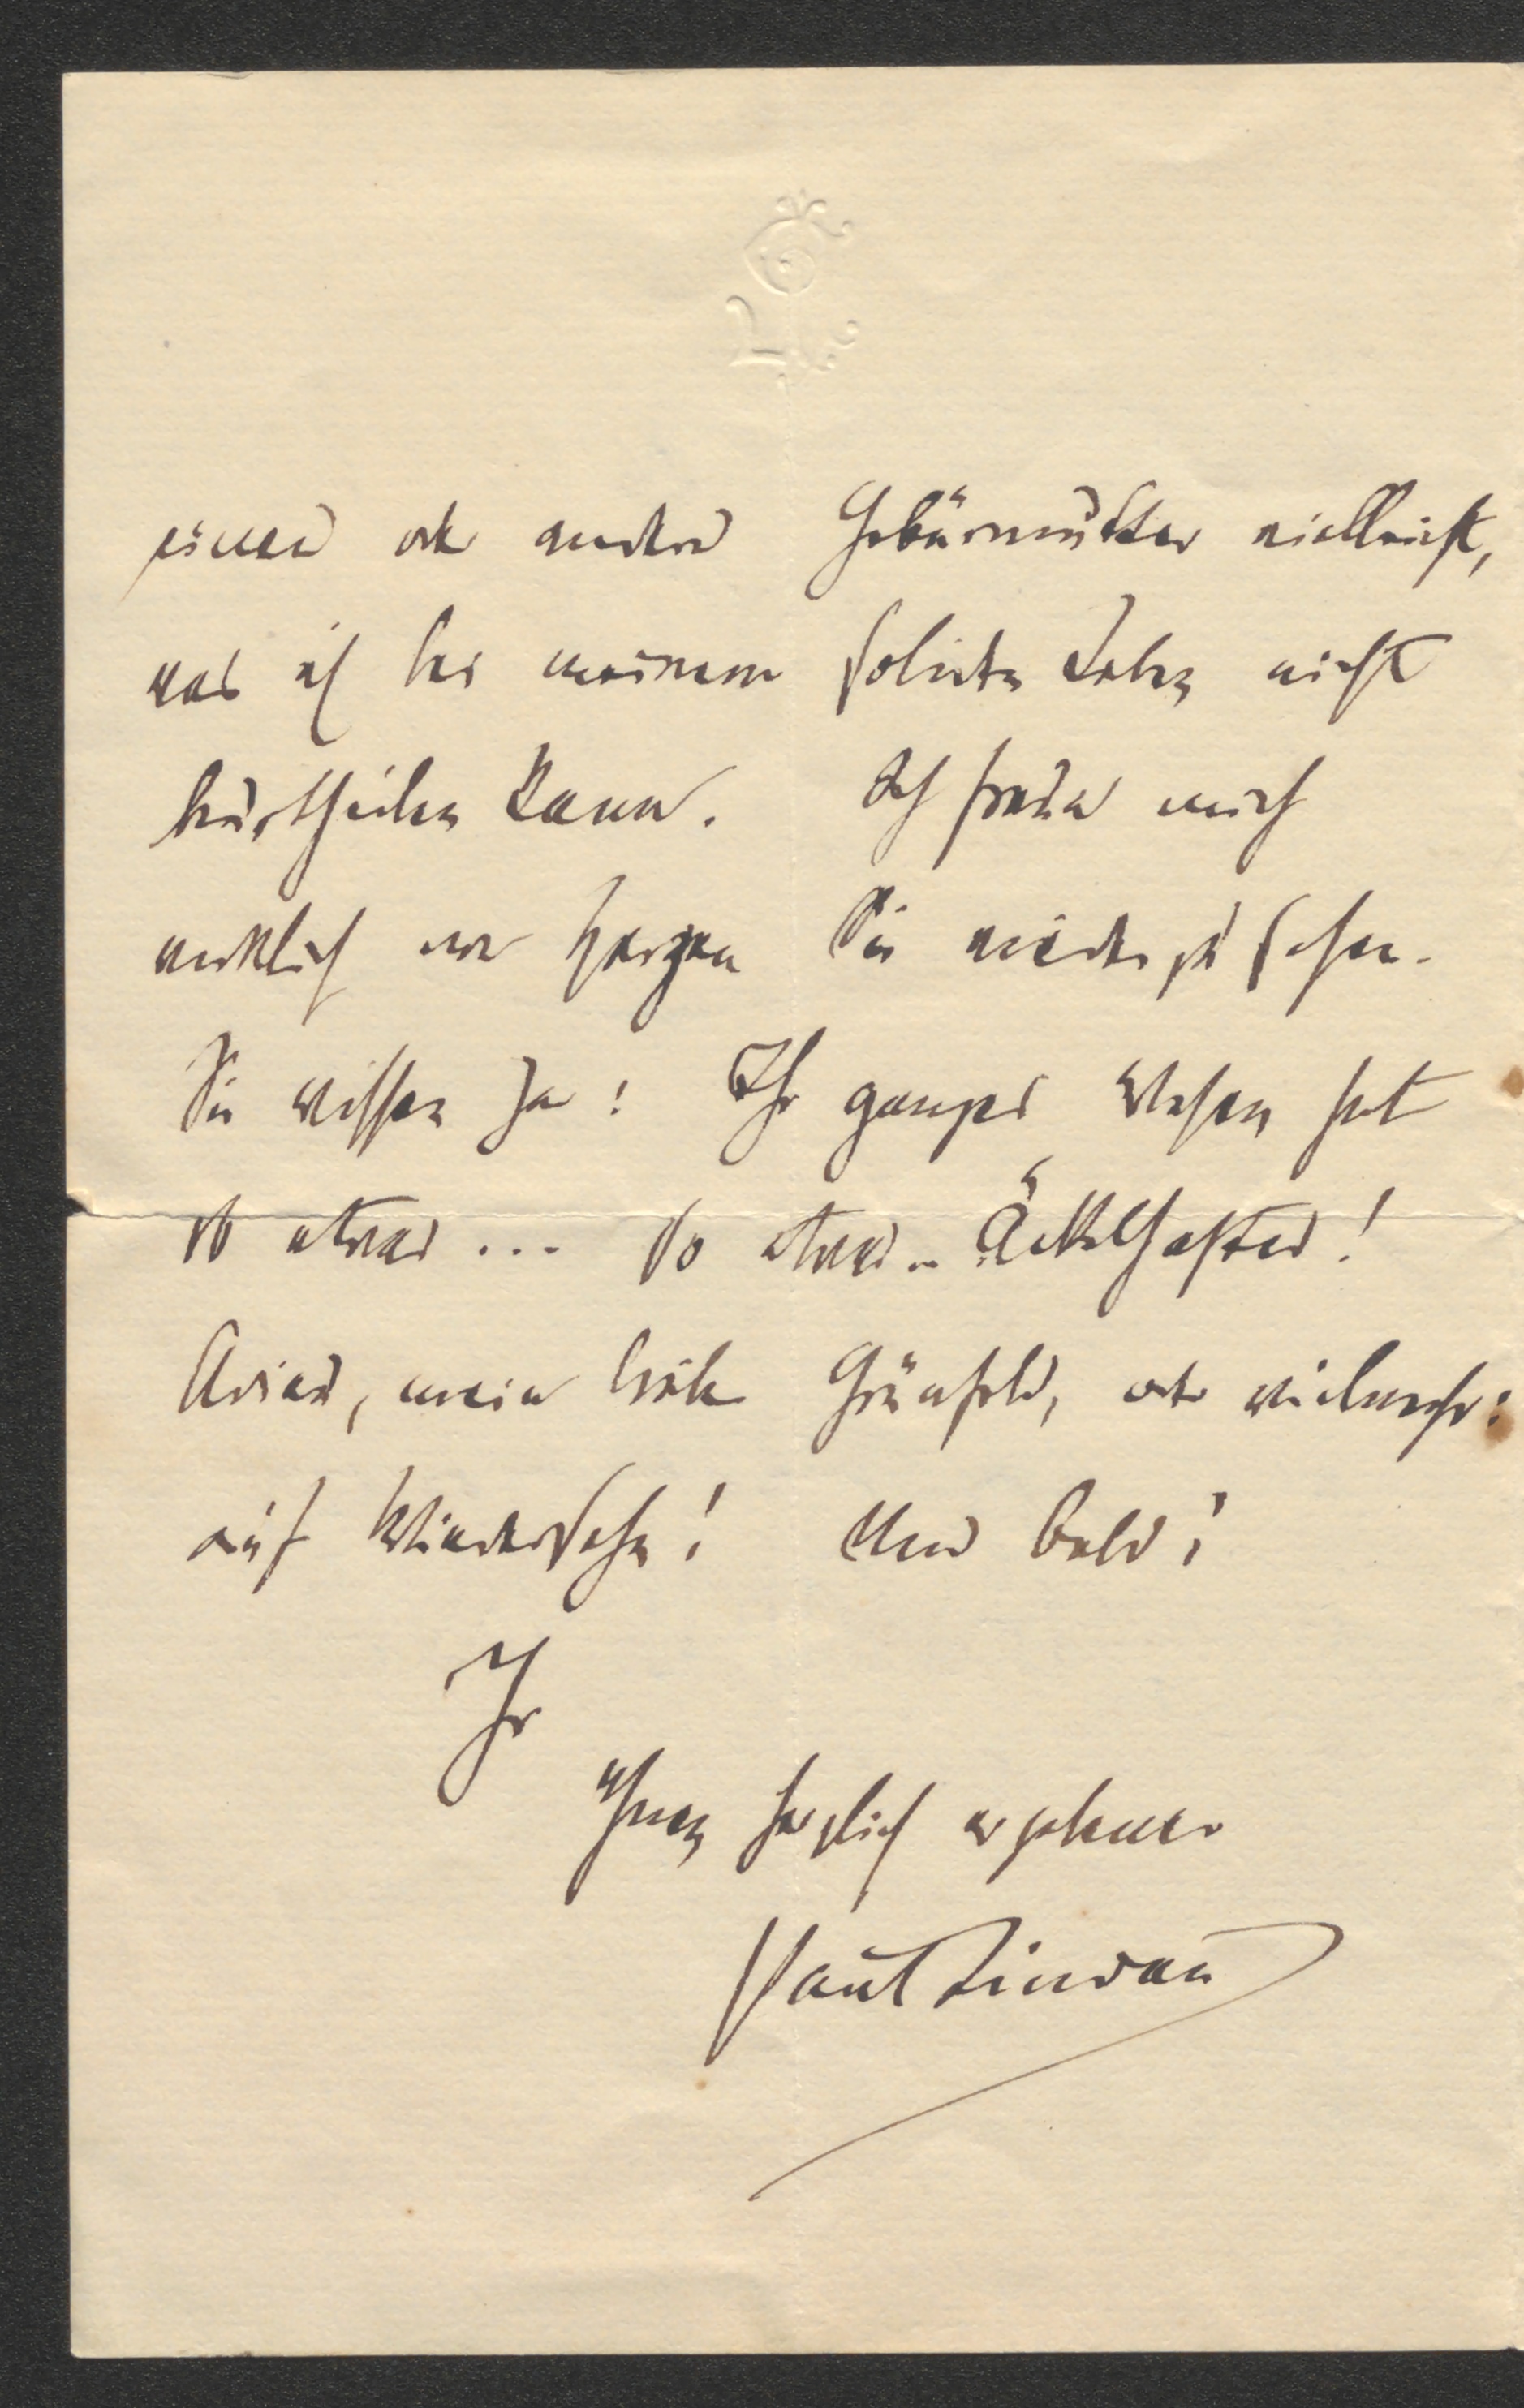 einer oder anderer Gebärmutter vielleicht,
was ich bei meinem soliden Leben nicht
beurtheilen kann. Ich freue mich
wirklich von Herzen Sie wieder zu sehen.
Sie wissen ja! Ihr ganzes Wesen hat
so etwas ... so etwas .. Äckelhaftes!
Adieu, mein lieber Grünfeld, oder vielmehr:
auf Wiedersehn! Und bald!
Ihr
Ihnen herzlich ergebener
Paul Lindau